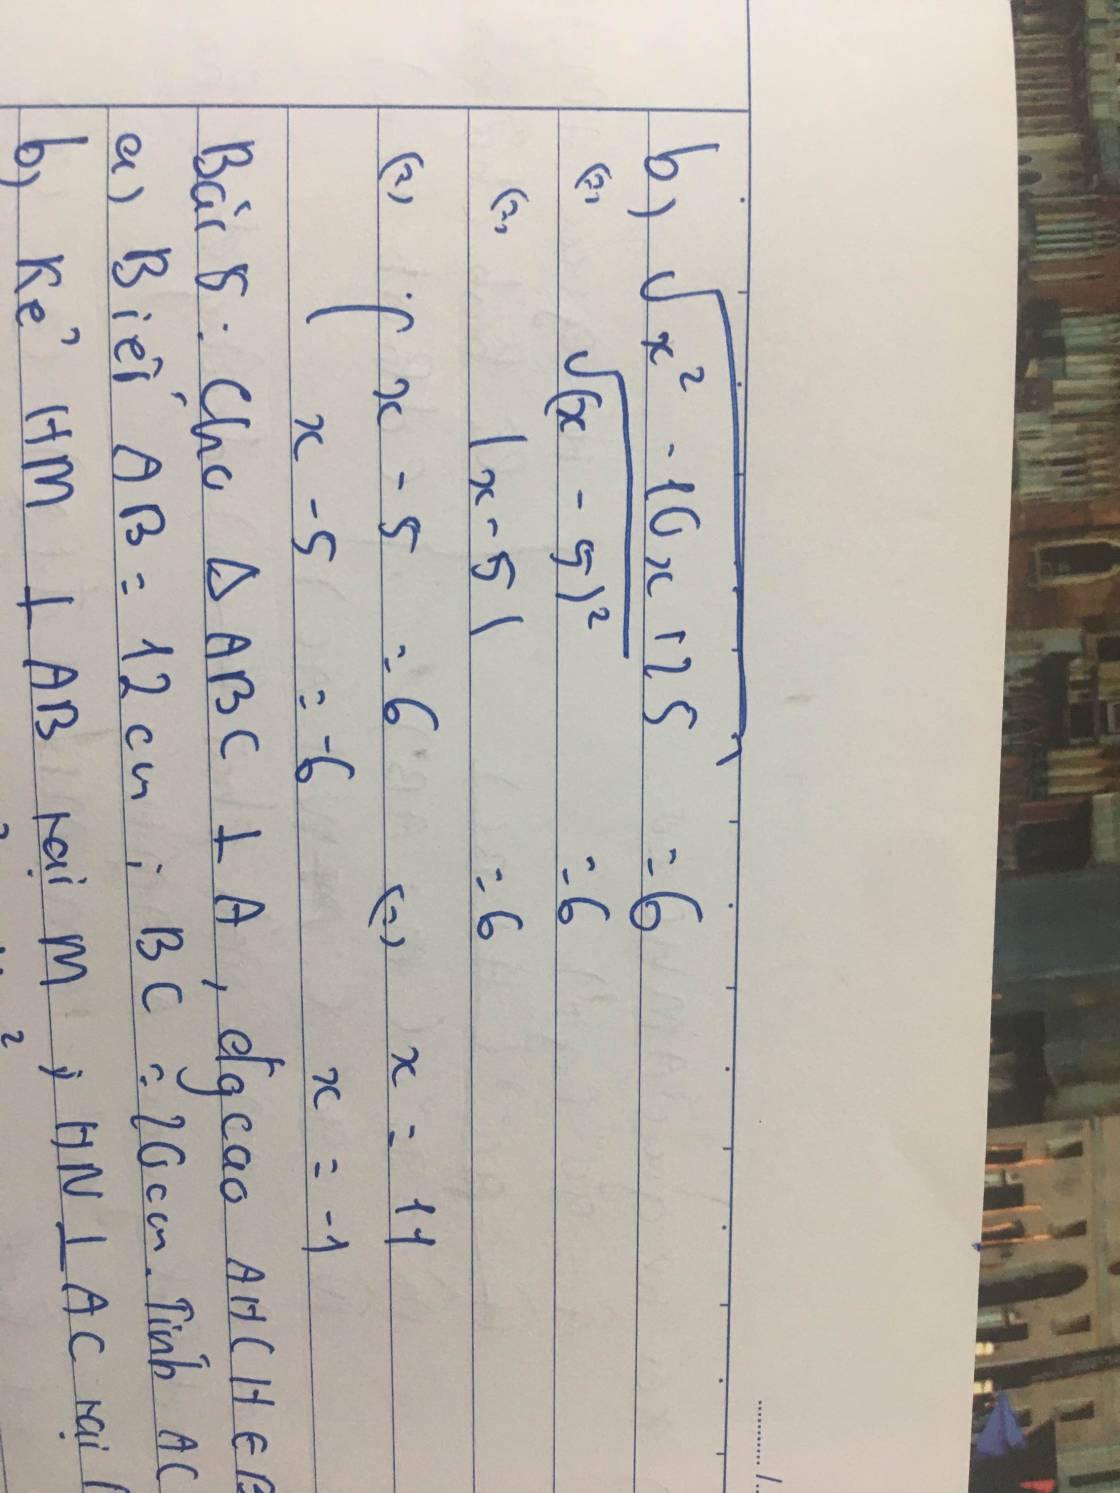 b) √x² - 10x + 25 = 6
(=) √(x - 5)² = 6
(=) |x - 5| = 6
(=) { x - 5 = 6 (=) x = 11
x - 5 = -6 x = -1
Bài 5: Cho Δ ABC ⊥ A, đgcao AH (H ∈ B
a) Biết AB = 12cm; BC = 20cm. Tính AC
b) Kẻ HM ⊥ AB tại M; HN ⊥ AC tại